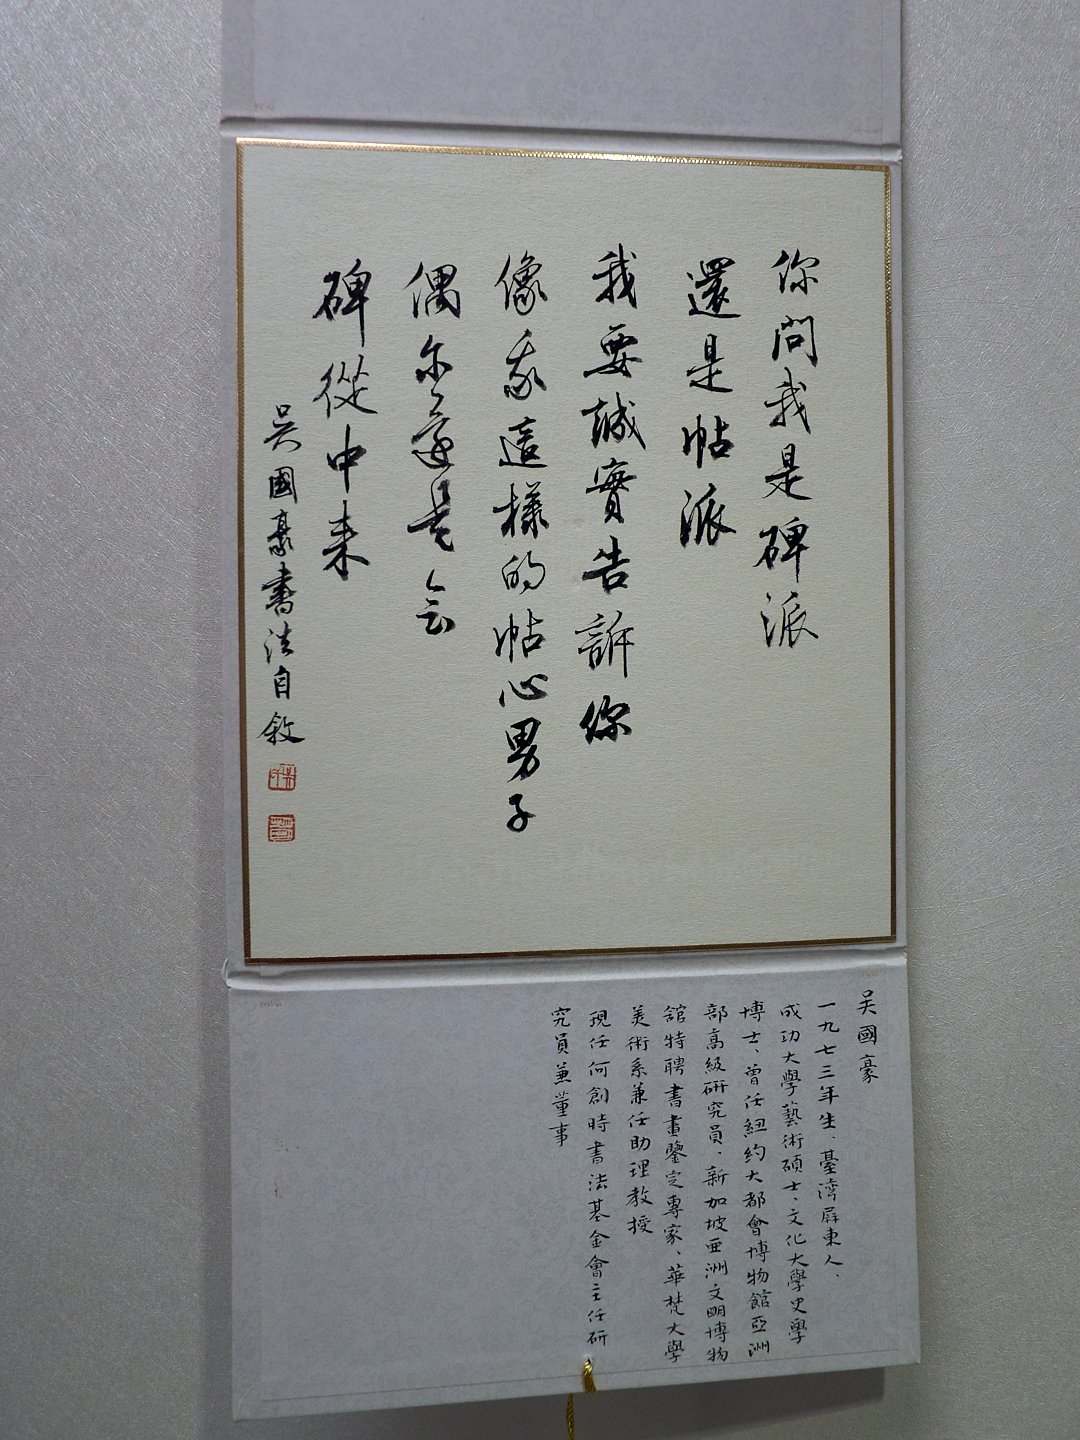 你問我是碑派
還是帖派
我要誠實告訴你
像我這樣的帖心男子
偶尔還是会
碑從中来
吳國豪書法自敘
吴國豪
一九七三年生、臺灣屏東人、
成功大學藝術碩士、文化大學史學
博士、曾任紐約大都會博物館亞洲
部高級研究員、新加坡亞洲文明博物
舘特聘書畫鑒定專家、華梵大學
美術系兼任助理教授
現任何創時書法基金會主任研
究員兼董事